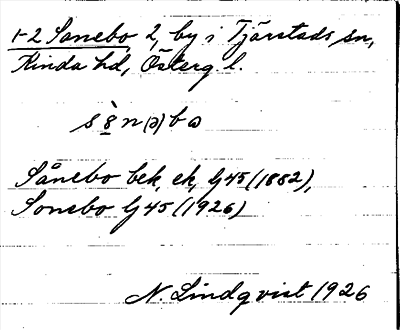 1-2 Sonebo 2, by i Tjärstads sn,
Kinda hd, Österg l.
sὸ̱n(ə)bω
Sånebo bek. ek, lj 45 (1882),
Sonebo lj 45 (1926)
N. Lindqvist 1926